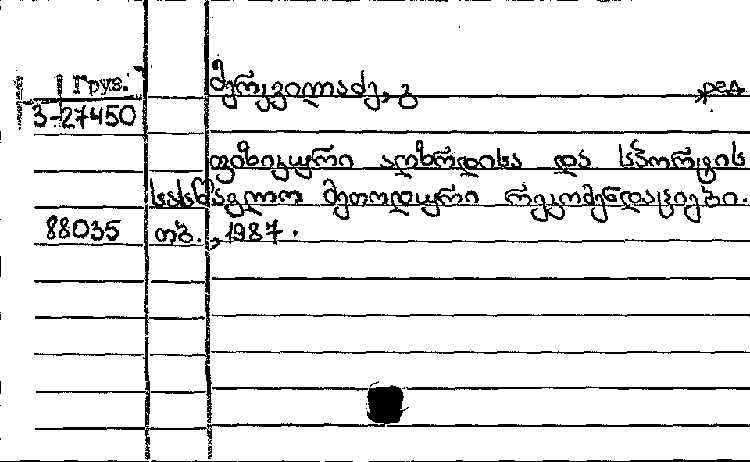 Груз.
მერკვილაძე, გ ,ред
3-27450
ფიზიკური აღზრდისა და სპორტის
სასწავლო მეთოდური რეკომენდაციები.
88035 თბ., 1987.